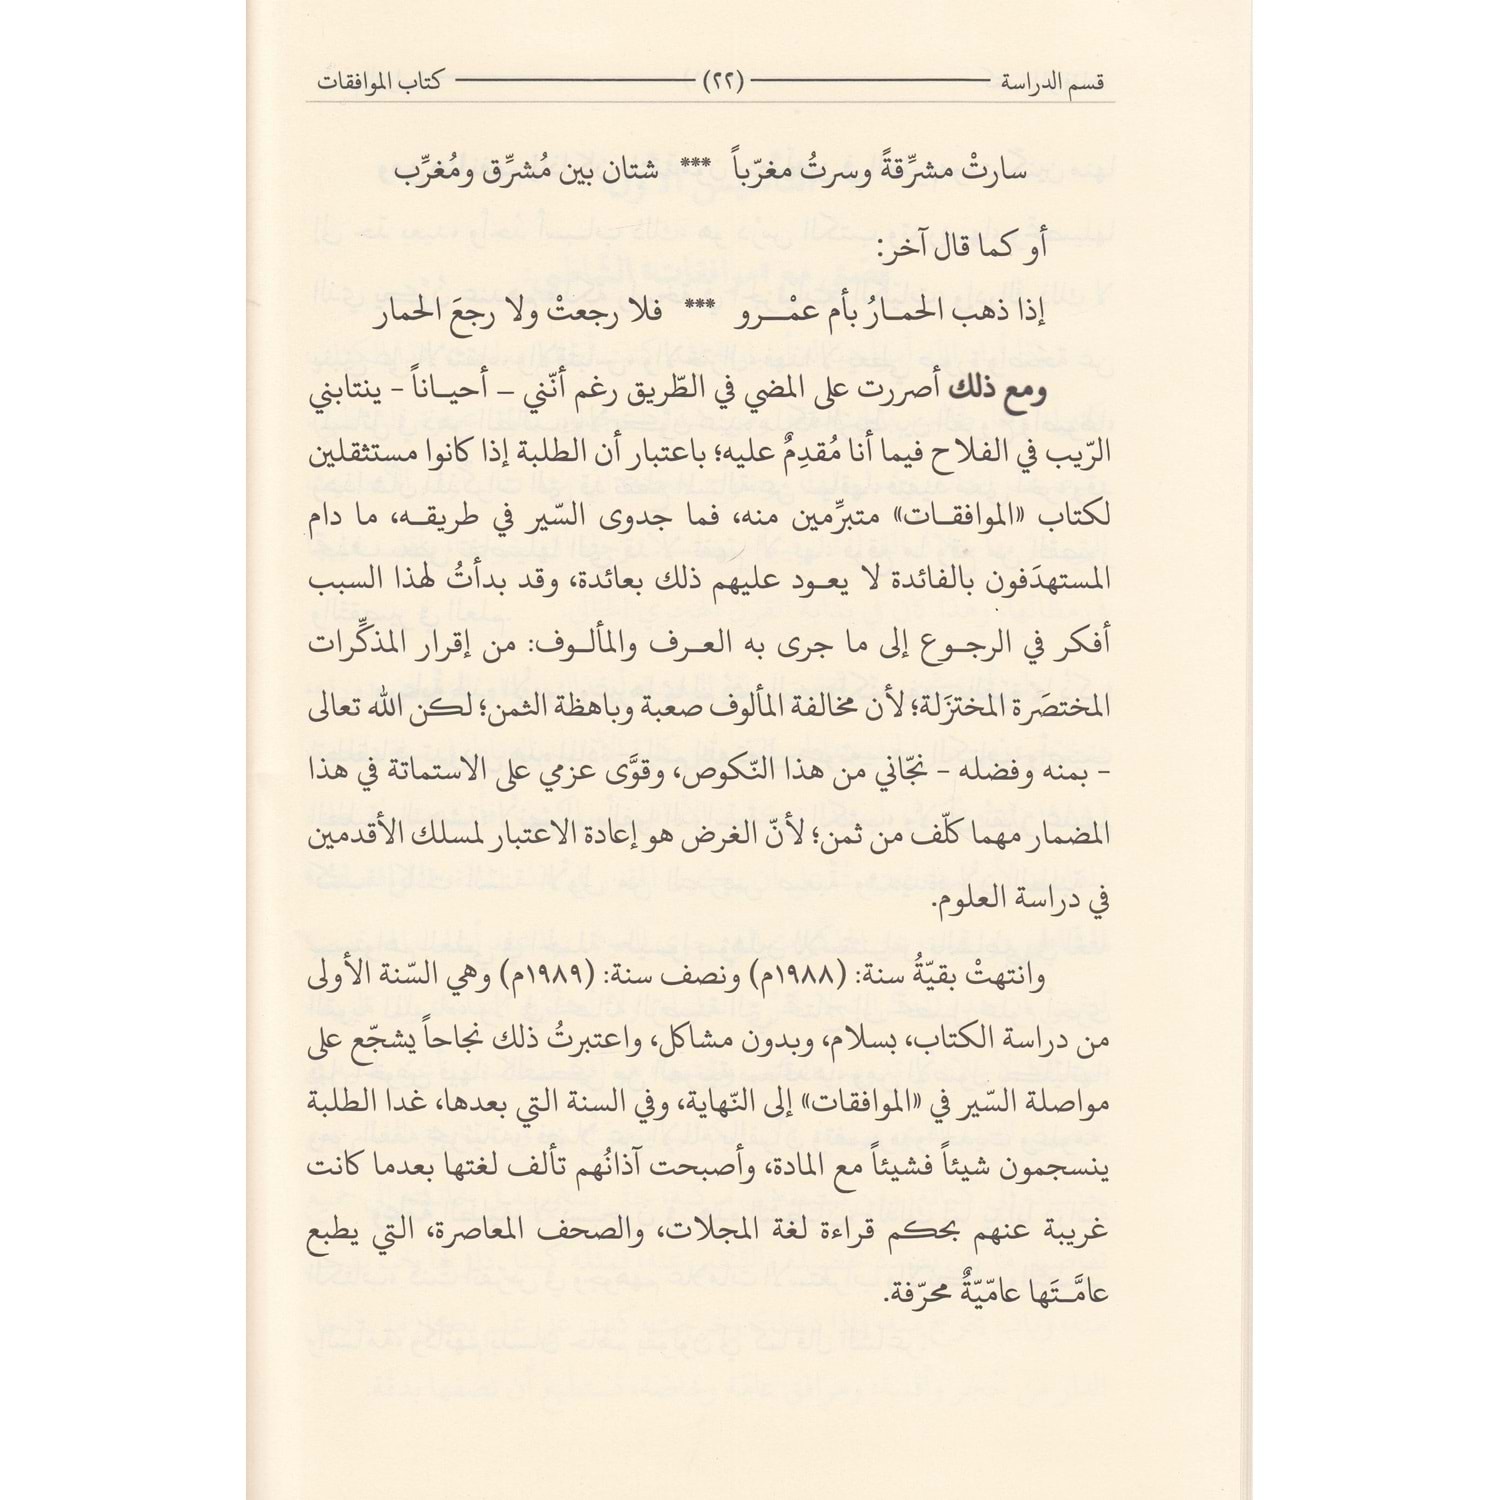 قسم الدراسة (٢٢) كتاب الموافقات
سارتْ مشرِّقةً وسرتُ مغرّباً *** شتان بين مُشرِّق ومُغرِّب
أو كما قال آخر:
إذا ذهب الحمــارُ بأم عمْـــرو *** فلا رجعتْ ولا رجعَ الحمار
ومع ذلك أصررت على المضي في الطّريق رغم أنّني – أحيــاناً - ينتابني
الرّيب في الفلاح فيما أنا مُقدِمٌ عليه؛ باعتبار أن الطلبة إذا كانوا مستثقلين
لكتاب «الموافقــات» متبرِّمين منه، فما جدوى السّير في طريقــه، ما دام
المستهدَفون بالفائدة لا يعــود عليهم ذلك بعائدة، وقد بدأتُ لهذا السبب
أفكر في الرجــوع إلى ما جرى به العــرف والمألــوف: من إقرار المذكِّرات
المختصَرة المختزَلة؛ لأن مخالفة المألوف صعبة وباهظة الثمن؛ لكن الله تعالى
- بمنه وفضله - نجّاني من هذا النّكوص، وقوَّى عزمي على الاستماتة في هذا
المضمار مهما كلّف من ثمن؛ لأنّ الغرض هو إعادة الاعتبار لمسلك الأقدمين
في دراسة العلوم.
وانتهتْ بقيّةُ سنة: (١٩٨٨م) ونصف سنة: (١٩٨٩م) وهي السّنة الأولى
من دراسة الكتاب، بسلام، وبدون مشاكل، واعتبرتُ ذلك نجاحاً يشجّع على
مواصلة السّير في «الموافقات» إلى النّهاية، وفي السنة التي بعدها، غدا الطلبة
ينسجمون شيئاً فشيئاً مع المادة، وأصبحت آذانُهم تألف لغتها بعدما كانت
غريبة عنهم بحكم قراءة لغة المجلات، والصحف المعاصرة، التي يطبع
عامَّــتَها عامّيّةٌ محرّفة.